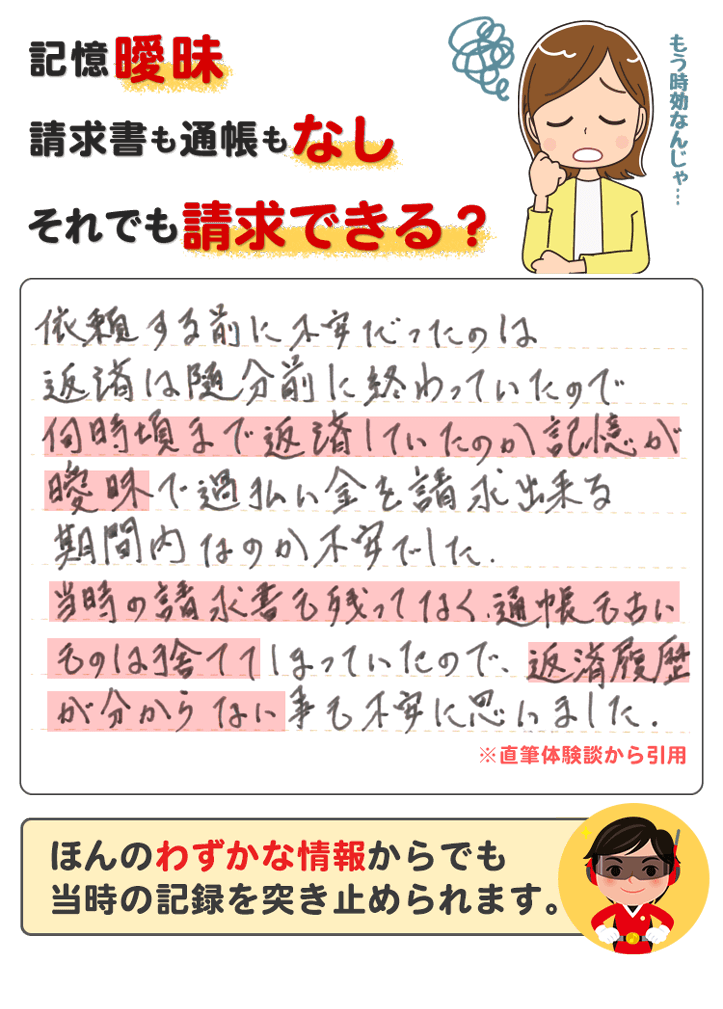 記憶曖昧
請求書も通帳もなし
それでも請求できる？
もう時効なんじゃ…
依頼する前に不安だったのは
返済は随分前に終わっていたので
何時頃まで返済していたのか記憶が
曖昧で過払い金を請求出来る
期間内なのか不安でした.
当時の請求書も残ってなく、通帳も古い
ものは捨ててしまっていたので、返済履歴
が分からない事も不安に思いました.
※直筆体験談から引用
ほんのわずかな情報からでも
当時の記録を突き止められます。